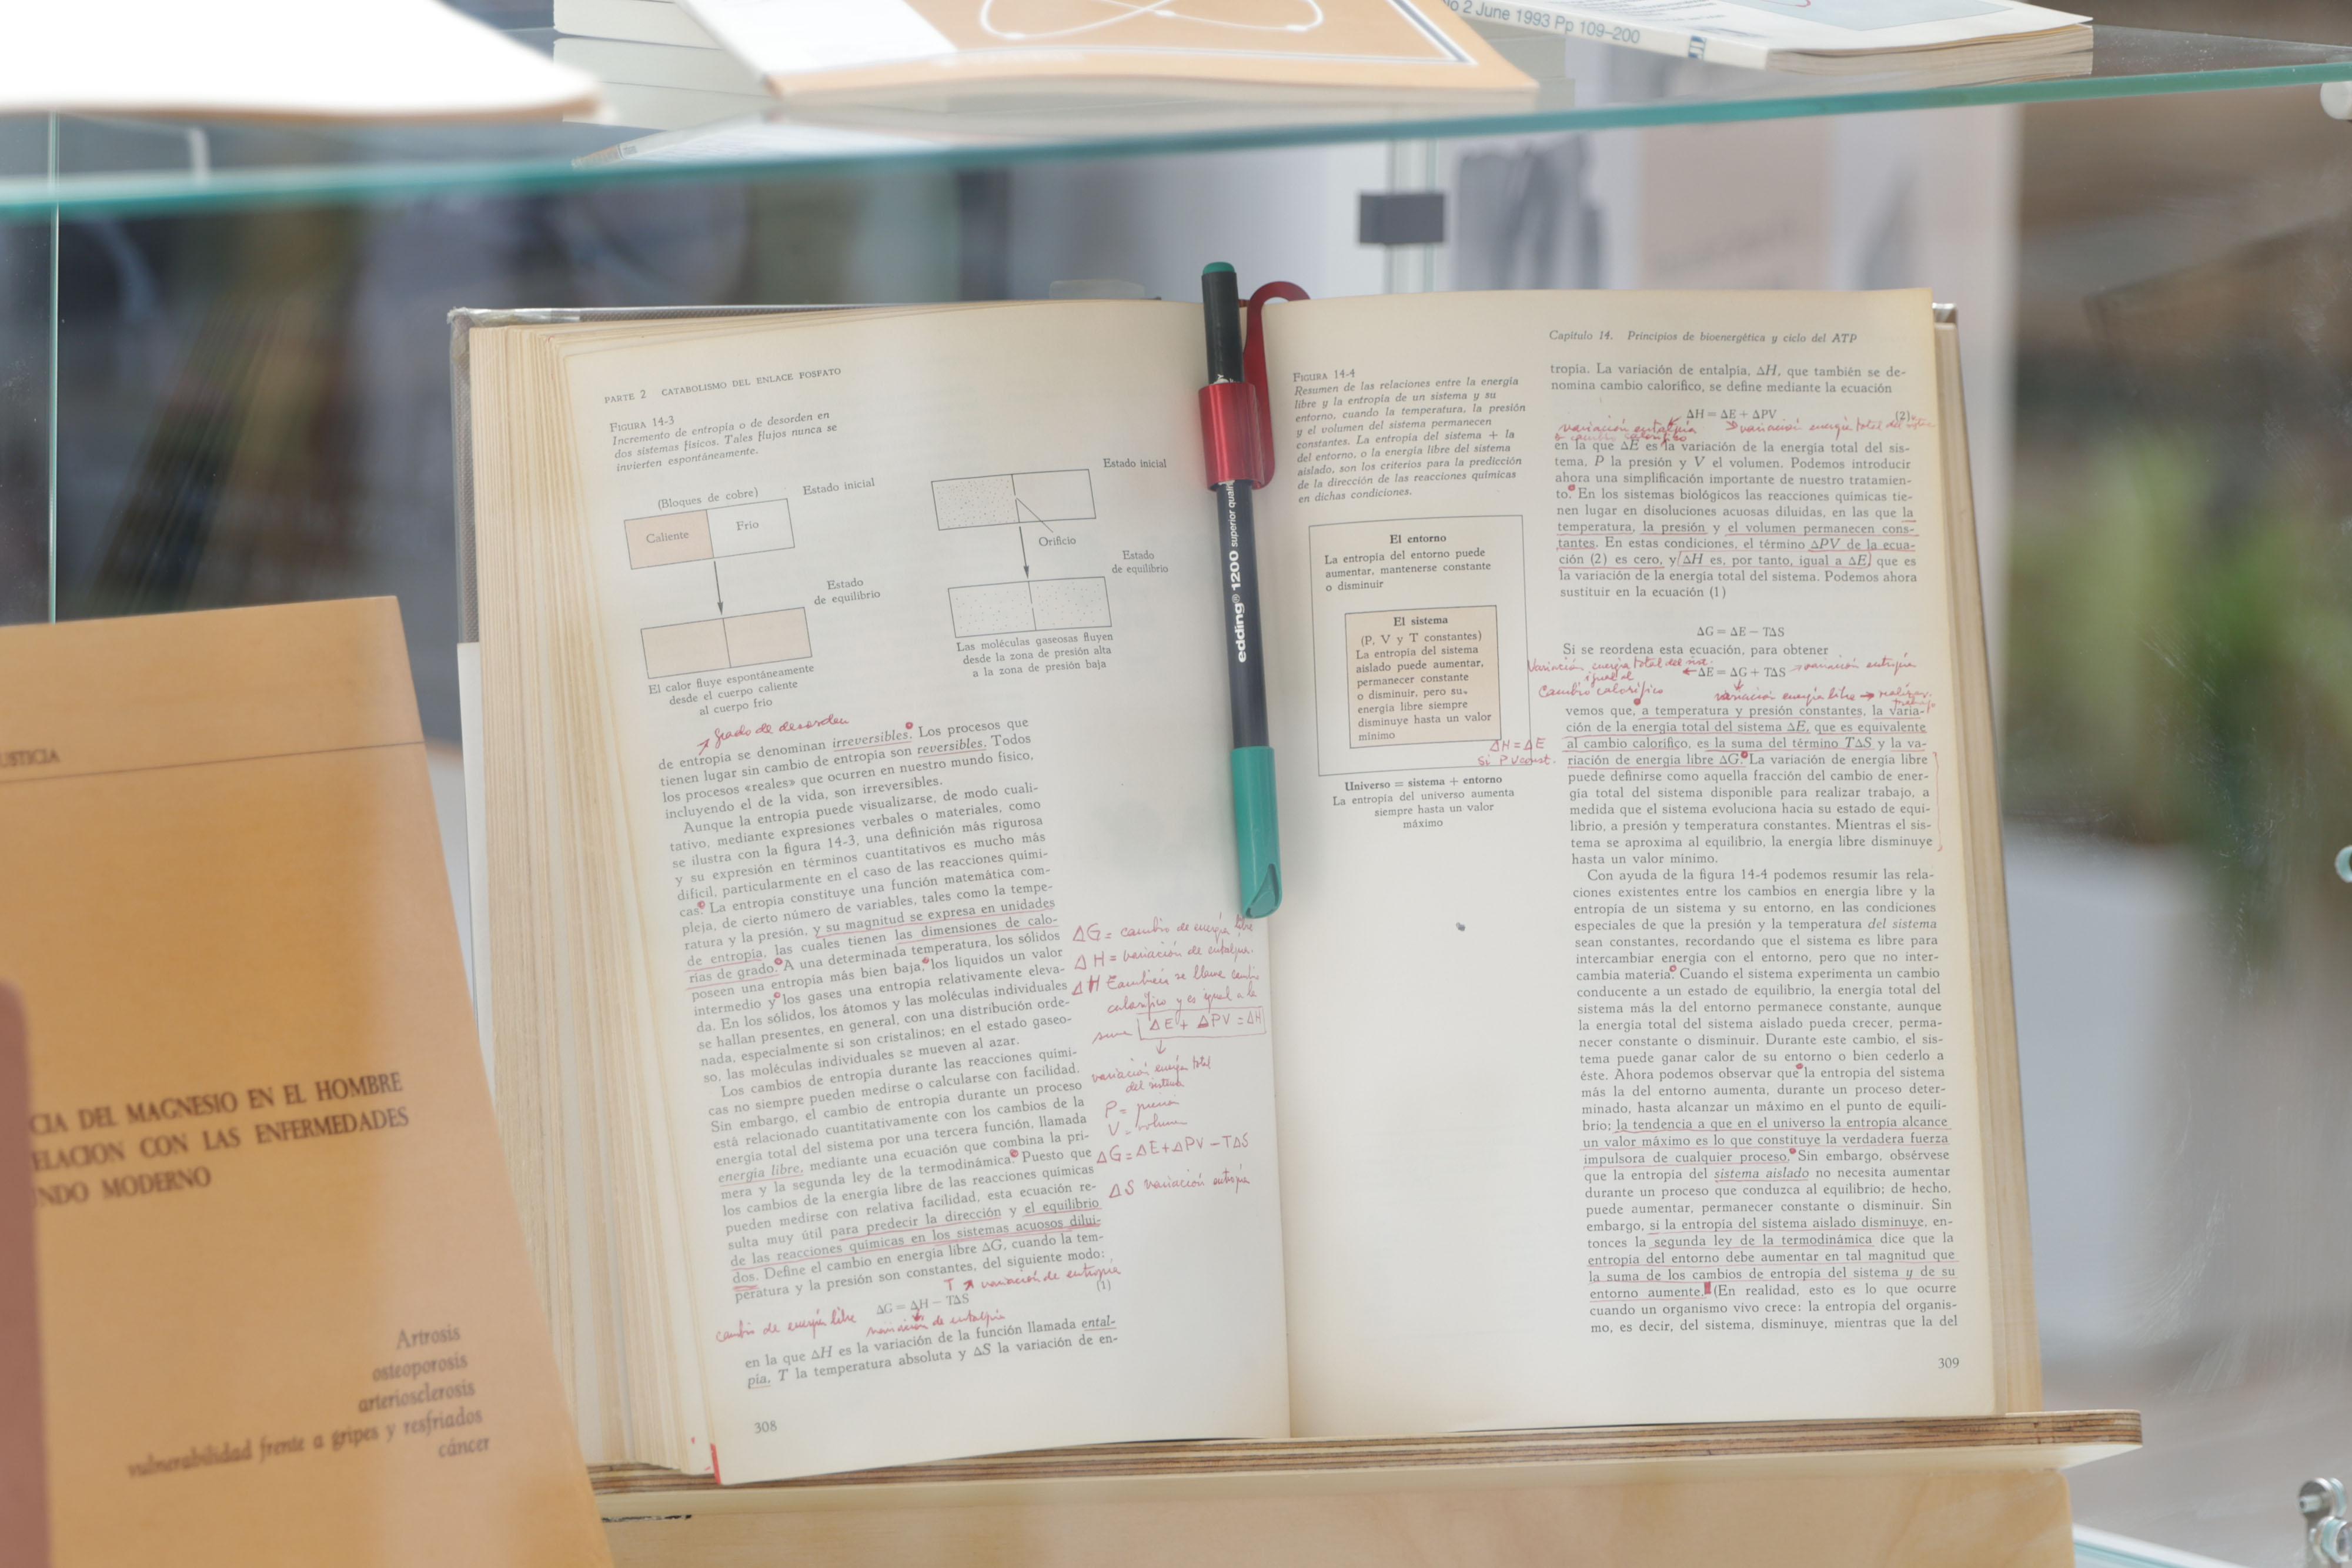 No 2 June 1993 Pp 109–200
PARTE 2 CATABOLISMO DEL ENLACE FOSFATO
FIGURA 14-3
Incremento de entropía o de desorden en
dos sistemas físicos. Tales flujos nunca se
invierten espontáneamente.
(Bloques de cobre)
Estado inicial
Caliente
Frío
Estado
de equilibrio
El calor fluye espontáneamente
desde el cuerpo caliente
al cuerpo frío
Estado inicial
Orificio
Estado
de equilibrio
Las moléculas gaseosas fluyen
desde la zona de presión alta
a la zona de presión baja
grado de desorden
de entropía se denominan irreversibles. Los procesos que
tienen lugar sin cambio de entropía son reversibles. Todos
los procesos «reales» que ocurren en nuestro mundo físico,
incluyendo el de la vida, son irreversibles.
Aunque la entropía puede visualizarse, de modo cuali-
tativo, mediante expresiones verbales o materiales, como
se ilustra con la figura 14-3, una definición más rigurosa
y su expresión en términos cuantitativos es mucho más
difícil, particularmente en el caso de las reacciones quími-
cas. La entropía constituye una función matemática com-
pleja, de cierto número de variables, tales como la tempe-
ratura y la presión, y su magnitud se expresa en unidades
de entropía, las cuales tienen las dimensiones de calo-
rías de grado. A una determinada temperatura, los sólidos
poseen una entropía más bien baja, los líquidos un valor
intermedio y los gases una entropía relativamente eleva-
da. En los sólidos, los átomos y las moléculas individuales
se hallan presentes, en general, con una distribución orde-
nada, especialmente si son cristalinos; en el estado gaseo-
so, las moléculas individuales se mueven al azar.
Los cambios de entropía durante las reacciones quími-
cas no siempre pueden medirse o calcularse con facilidad.
Sin embargo, el cambio de entropía durante un proceso
está relacionado cuantitativamente con los cambios de la
energía total del sistema por una tercera función, llamada
energía libre, mediante una ecuación que combina la pri-
mera y la segunda ley de la termodinámica. Puesto que
los cambios de la energía libre de las reacciones químicas
pueden medirse con relativa facilidad, esta ecuación re-
sulta muy útil para predecir la dirección y el equilibrio
de las reacciones químicas en los sistemas acuosos dilui-
dos. Define el cambio en energía libre ΔG, cuando la tem-
peratura y la presión son constantes, del siguiente modo:
T variación de entropía
ΔG = ΔH − TΔS (1)
cambio de energía libre
variación de entalpía
en la que ΔH es la variación de la función llamada ental-
pía, T la temperatura absoluta y ΔS la variación de en-
308
ΔG = cambio de energía libre
ΔH = variación de entalpía.
ΔH también se llama cambio
calorífico y es igual a la
suma ΔE + ΔPV = ΔH
variación energía total
del sistema
P = presión
V = volumen
ΔG = ΔE + ΔPV − TΔS
ΔS variación entropía
edding® 1200 superior quality
Capítulo 14. Principios de bioenergética y ciclo del ATP
FIGURA 14-4
Resumen de las relaciones entre la energía
libre y la entropía de un sistema y su
entorno, cuando la temperatura, la presión
y el volumen del sistema permanecen
constantes. La entropía del sistema + la
del entorno, o la energía libre del sistema
aislado, son los criterios para la predicción
de la dirección de las reacciones químicas
en dichas condiciones.
El entorno
La entropía del entorno puede
aumentar, mantenerse constante
o disminuir
El sistema
(P, V y T constantes)
La entropía del sistema
aislado puede aumentar,
permanecer constante
o disminuir, pero su
energía libre siempre
disminuye hasta un valor
mínimo
ΔH = ΔE
si PV const.
Universo = sistema + entorno
La entropía del universo aumenta
siempre hasta un valor
máximo
tropía. La variación de entalpía, ΔH, que también se de-
nomina cambio calorífico, se define mediante la ecuación
ΔH = ΔE + ΔPV (2)
variación entalpía variación energía total del
o cambio calorífico
en la que ΔE es la variación de la energía total del sis-
tema, P la presión y V el volumen. Podemos introducir
ahora una simplificación importante de nuestro tratamien-
to. En los sistemas biológicos las reacciones químicas tie-
nen lugar en disoluciones acuosas diluidas, en las que la
temperatura, la presión y el volumen permanecen cons-
tantes. En estas condiciones, el término ΔPV de la ecua-
ción (2) es cero, y ΔH es, por tanto, igual a ΔE, que es
la variación de la energía total del sistema. Podemos ahora
sustituir en la ecuación (1)
ΔG = ΔE − TΔS
Si se reordena esta ecuación, para obtener
Variación energía total del sist.
igual al
Cambio calorífico
ΔE = ΔG + TΔS variación entropía
variación energía libre realizar
trabajo
vemos que, a temperatura y presión constantes, la varia-
ción de la energía total del sistema ΔE, que es equivalente
al cambio calorífico, es la suma del término TΔS y la va-
riación de energía libre ΔG. La variación de energía libre
puede definirse como aquella fracción del cambio de ener-
gía total del sistema disponible para realizar trabajo, a
medida que el sistema evoluciona hacia su estado de equi-
librio, a presión y temperatura constantes. Mientras el sis-
tema se aproxima al equilibrio, la energía libre disminuye
hasta un valor mínimo.
Con ayuda de la figura 14-4 podemos resumir las rela-
ciones existentes entre los cambios en energía libre y la
entropía de un sistema y su entorno, en las condiciones
especiales de que la presión y la temperatura del sistema
sean constantes, recordando que el sistema es libre para
intercambiar energía con el entorno, pero que no inter-
cambia materia. Cuando el sistema experimenta un cambio
conducente a un estado de equilibrio, la energía total del
sistema más la del entorno permanece constante, aunque
la energía total del sistema aislado pueda crecer, perma-
necer constante o disminuir. Durante este cambio, el sis-
tema puede ganar calor de su entorno o bien cederlo a
éste. Ahora podemos observar que la entropía del sistema
más la del entorno aumenta, durante un proceso deter-
minado, hasta alcanzar un máximo en el punto de equili-
brio; la tendencia a que en el universo la entropía alcance
un valor máximo es lo que constituye la verdadera fuerza
impulsora de cualquier proceso. Sin embargo, obsérvese
que la entropía del sistema aislado no necesita aumentar
durante un proceso que conduzca al equilibrio; de hecho,
puede aumentar, permanecer constante o disminuir. Sin
embargo, si la entropía del sistema aislado disminuye, en-
tonces la segunda ley de la termodinámica dice que la
entropía del entorno debe aumentar en tal magnitud que
la suma de los cambios de entropía del sistema y de su
entorno aumente. (En realidad, esto es lo que ocurre
cuando un organismo vivo crece: la entropía del organis-
mo, es decir, del sistema, disminuye, mientras que la del
309
USTICIA
CIA DEL MAGNESIO EN EL HOMBRE
ELACION CON LAS ENFERMEDADES
NDO MODERNO
Artrosis
osteoporosis
arteriosclerosis
vulnerabilidad frente a gripes y resfriados
cáncer